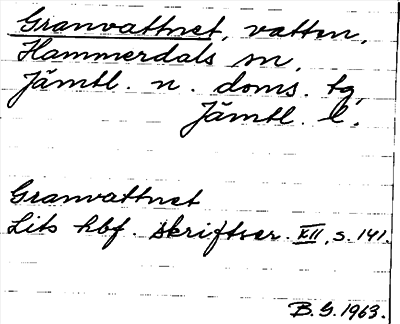 Granvattnet, vatten,
Hammerdals sn,
Jämtl. n. doms. tg,
Jämtl. l.
Granvattnet
Lits hbf. skriftser. XII, s. 141.
B.G. 1963.